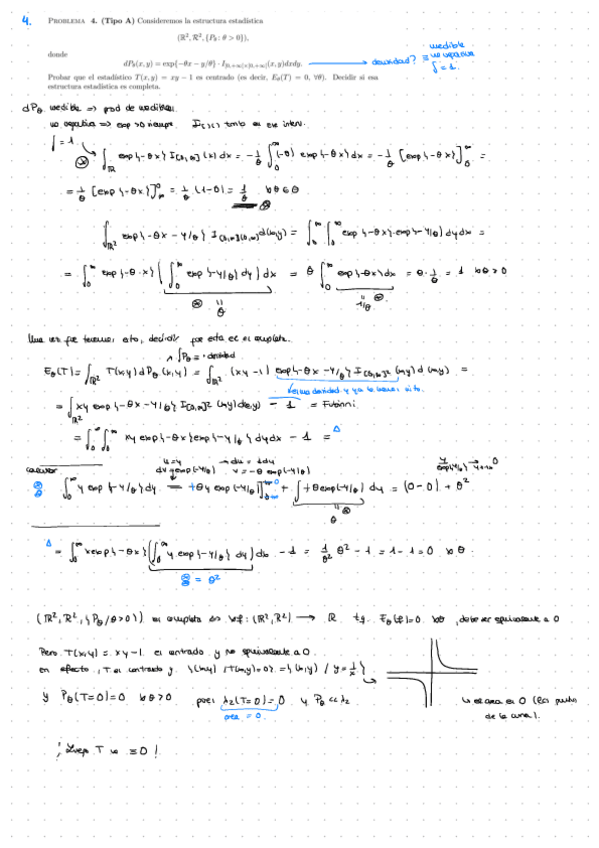 4. PROBLEMA 4. (Tipo A) Consideremos la estructura estadística
(ℝ², 𝓡², {P_θ : θ > 0}),
donde
dP_θ(x, y) = exp{−θx − y/θ} · I_{]0,+∞[×]0,+∞[}(x, y)dxdy. → densidad? ≡ medible
no negativa
∫ = 1.
Probar que el estadístico T(x, y) = xy − 1 es centrado (es decir, E_θ(T) = 0, ∀θ). Decidir si esa
estructura estadística es completa.
dP_θ medible => prod de medibles.
no negativa => exp >0 siempre.
∫ = 1
∫_ℝ exp{-θx} I_{[0,∞]}(x) dx = -1/θ ∫_0^∞ (-θ) exp{-θx} dx = -1/θ [exp{-θx}]_0^∞ =
= 1/θ (1-0) = 1/θ ∀θ∈Θ
∫_{ℝ²} exp{-θx - y/θ} I_{[0,∞]×[0,∞]} d(x,y) = ∫_0^∞ ∫_0^∞ exp{-θx} · exp{-y/θ} dy dx =
= ∫_0^∞ exp{-θ·x} (∫_0^∞ exp{-y/θ} dy) dx = θ ∫_0^∞ exp{-θx} dx = θ · 1/θ = 1 ∀θ>0
θ
1/θ
Una vez que tenemos esto, decidir que esta ee es completa.
E_θ(T) = ∫_{ℝ²} T(x,y) dP_θ(x,y) = ∫_{ℝ²} (xy-1) exp{-θx - y/θ} I_{[0,∞]²}(x,y) d(x,y) =
= ∫_{ℝ²} xy exp{-θx - y/θ} I_{[0,∞]²}(x,y) d(x,y) - 1 = Fubinni
= ∫_0^∞ ∫_0^∞ xy exp{-θx} exp{-y/θ} dy dx - 1 = Δ
u=y → du = 1dy
dv = exp(-y/θ) v = -θ exp(-y/θ)
∫_0^∞ y exp{-y/θ} dy = +θy exp(-y/θ)] + ∫ +θ exp(-y/θ) dy = (0-0) + θ²
θ
Δ = ∫_0^∞ x exp{-θx} (∫_0^∞ y exp{-y/θ} dy) dx - 1 = 1/θ² θ² - 1 = 1-1 = 0 ∀θ.
= θ²
(ℝ², 𝓡², {P_θ / θ>0}) es completa f: (ℝ², 𝓡²) → ℝ t.q. E_θ(f)=0 ∀θ, debe ser equivalente a 0
Pero T(x,y) = xy-1. es centrado y no equivalente a 0
en efecto, T es centrado y {(x,y) / T(x,y)=0} = {(x,y) / y = 1/x}
y P_θ(T=0)=0 ∀θ>0 pues λ₂(T=0)=0 y P_θ << λ₂
área = 0.
el área es 0 (los puntos
de la curva).
¡ Luego T no ≡ 0 !